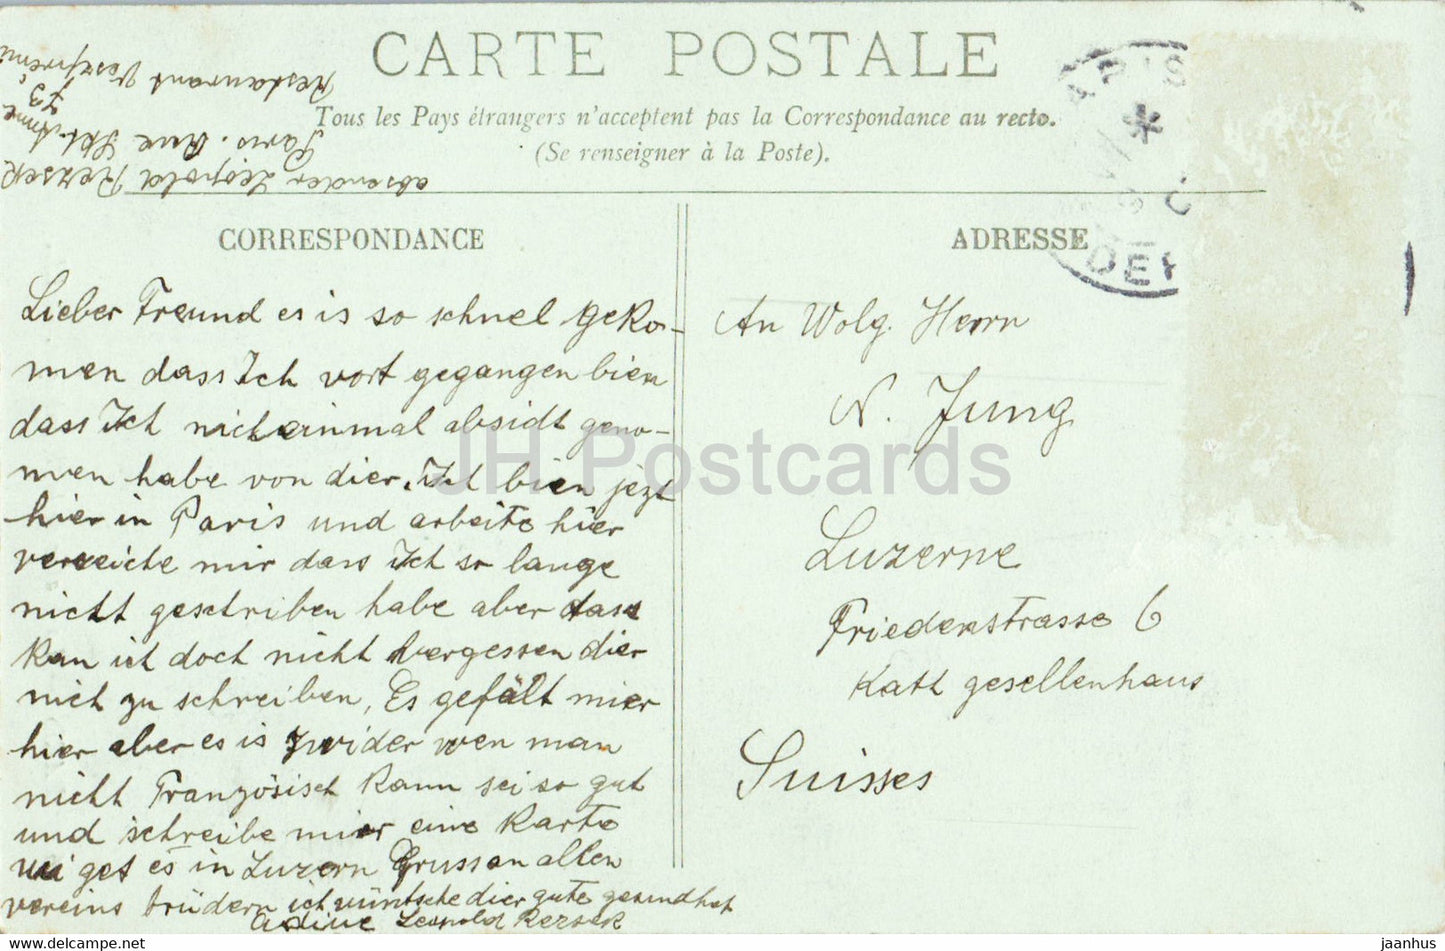 CARTE POSTALE
Tous les Pays étrangers n'acceptent pas la Correspondance au recto.
(Se renseigner à la Poste).
absender Leopold Rezsek
Paris. Rue
Restaurant
CORRESPONDANCE
Lieber Freund es is so schnel geko-
men dass Ich vort gegangen bien
dass Ich nicht einmal absidt geno-
men habe von dier. Ich bien jezt
hier in Paris und arbeite hier
verzeiche mir dass Ich so lange
nicht geschriben habe aber dass
kan ich doch nicht vergessen dier
nich zu schreiben, Es gefält mier
hier aber es is zwider wen man
nicht Französisch kann sei so gut
und schreibe mier eine Karte
wi get es in Luzern Grussen allen
vereins brüdern ich wüntsche dier gute gesundhet
Leopold Rezsek
ADRESSE
An Wolg. Herrn
N. Jung
Luzerne
Friedenstrasse 6
Kath gesellenhaus
Suisses
PARIS
DEP
JH Postcards
delcampe.net
jaanhus